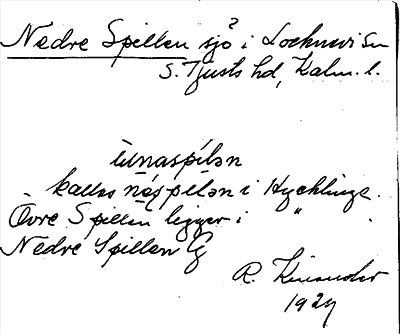 Nedre Spillen sjö i Locknevi Sn
S. Tjusts hd, Kalm. l.
kallas näspilən i Hycklinge.
Övre Spillen ligger i " .
Nedre Spillen
R. Kinander
1927